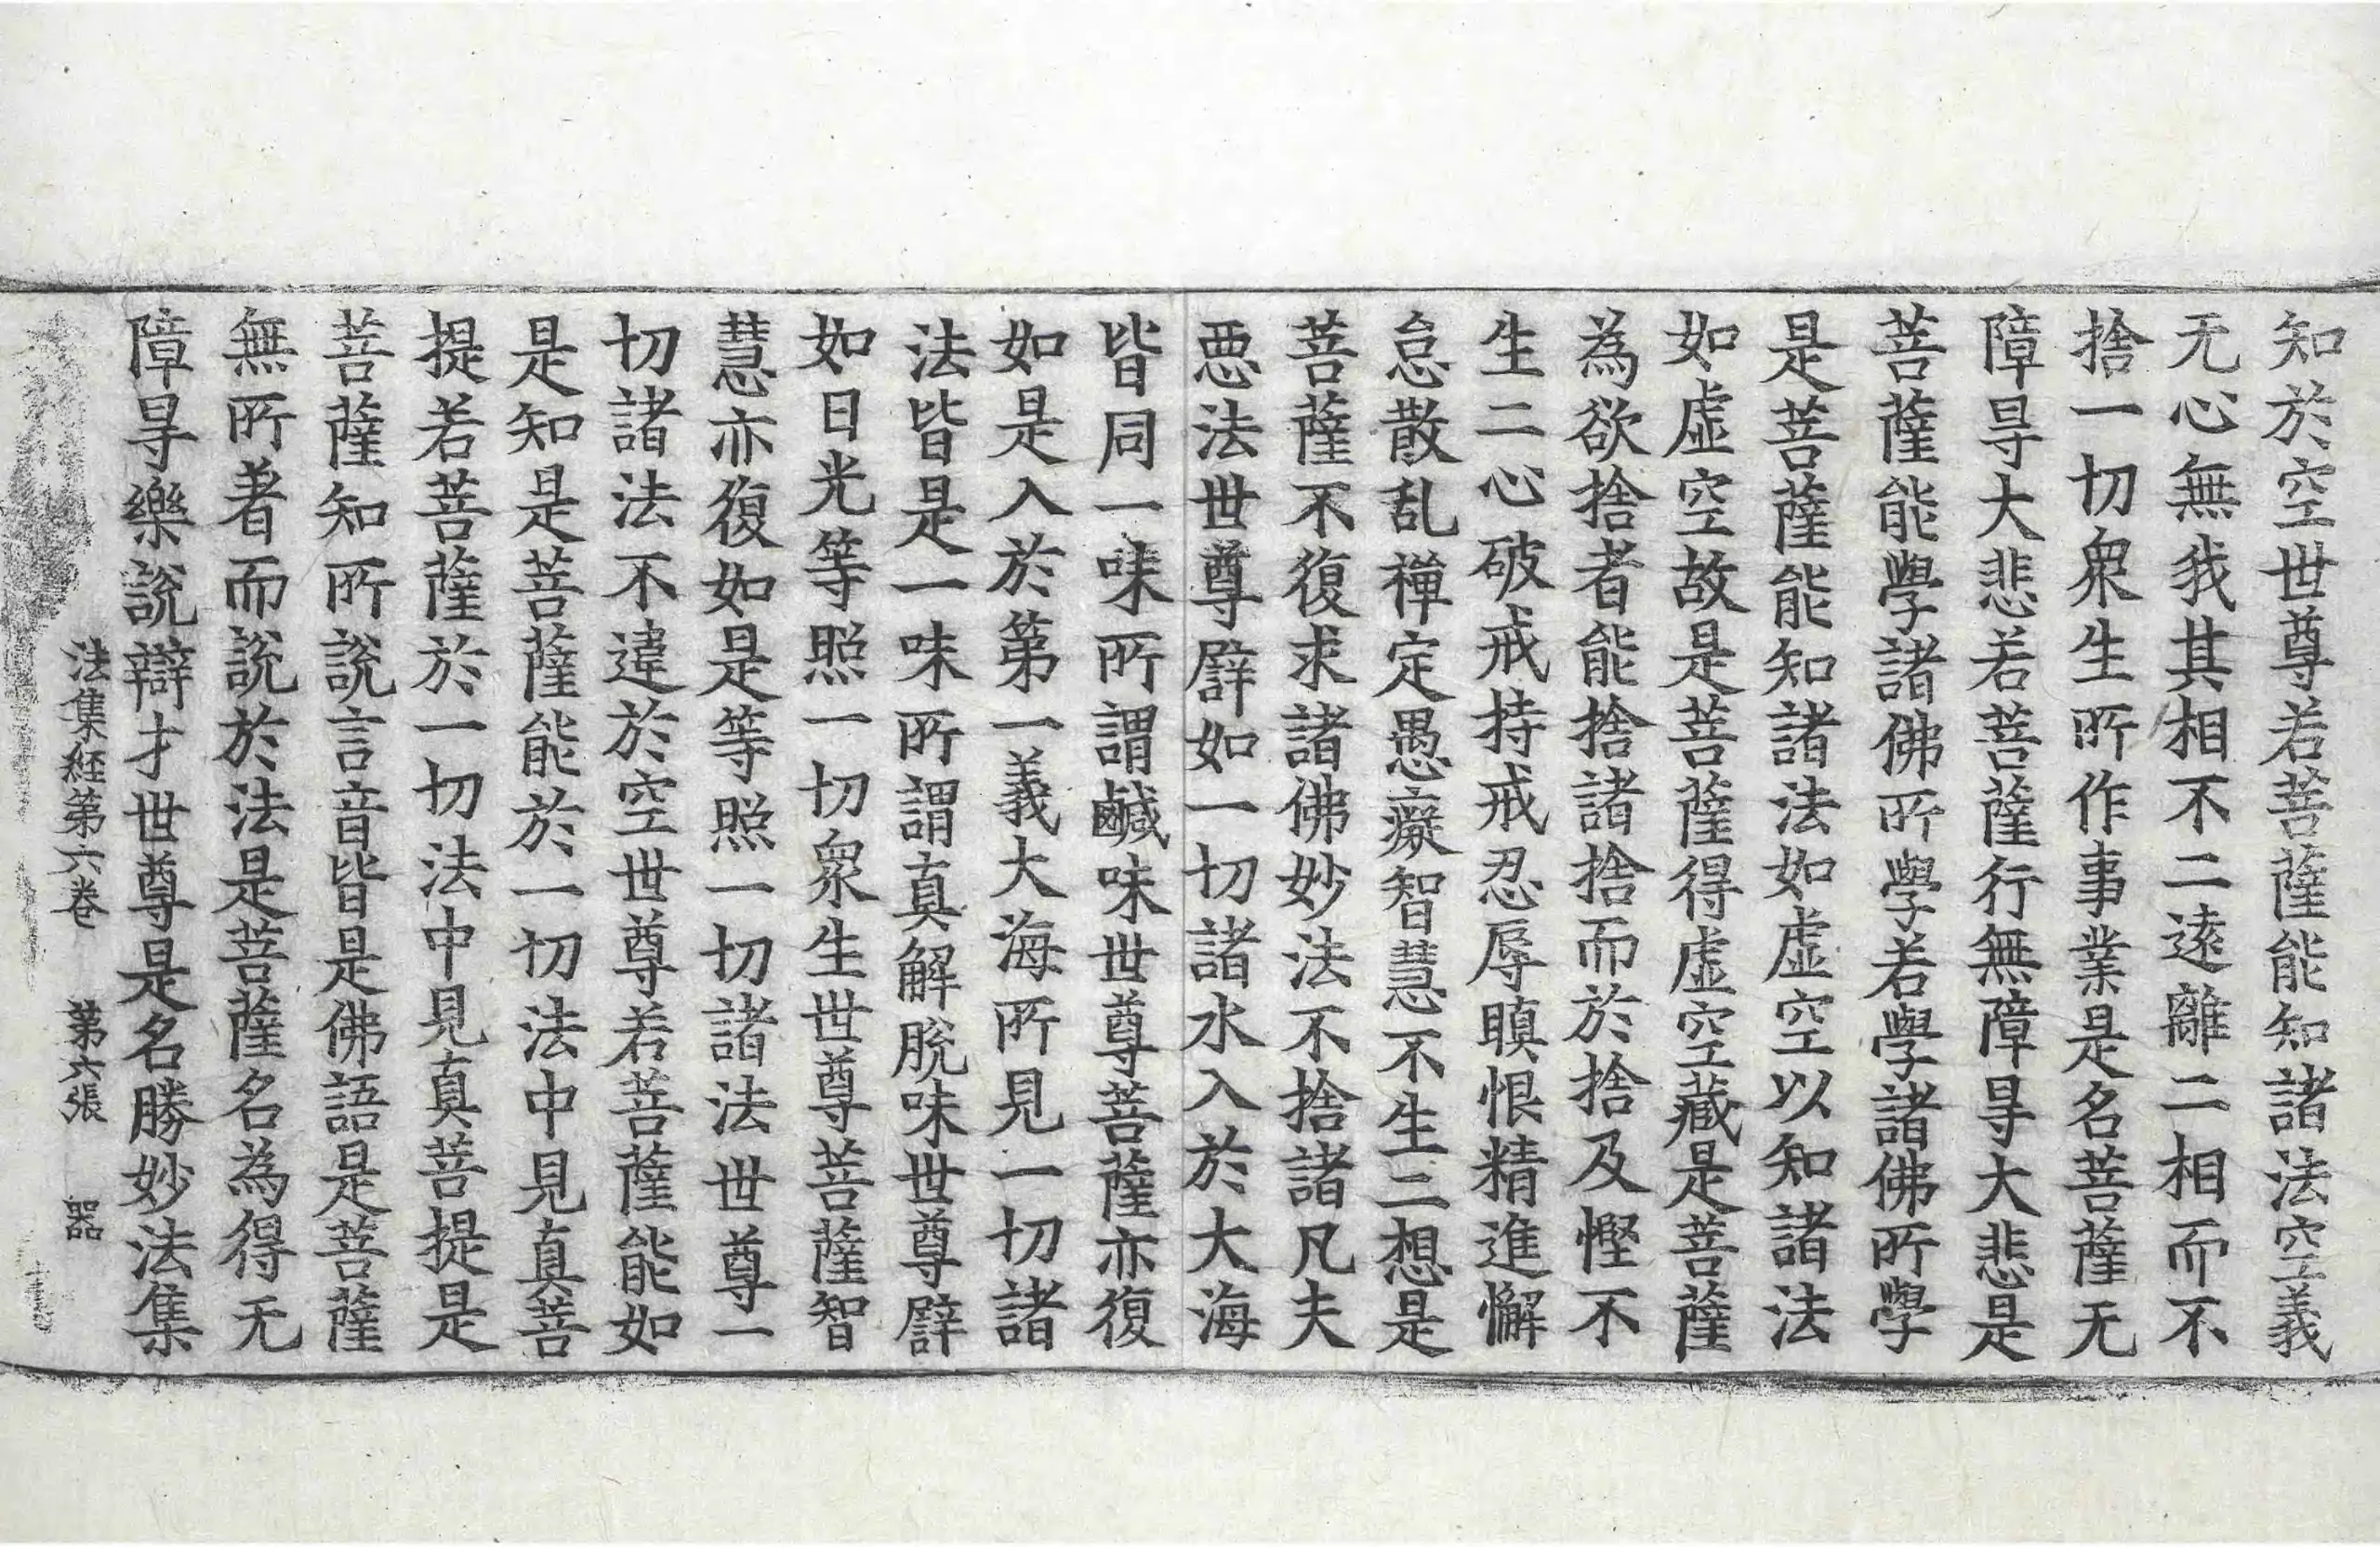 知於空世尊若菩薩能知諸法空義
无心無我其相不二遠離二相而不
捨一切衆生所作事業是名菩薩无
障㝵大悲若菩薩行無障㝵大悲是
菩薩能學諸佛所學若學諸佛所學
是菩薩能知諸法如虛空以知諸法
如虛空故是菩薩得虛空藏是菩薩
為欲捨者能捨諸捨而於捨及慳不
生二心破戒持戒忍辱瞋恨精進懈
怠散乱禪定愚癡智慧不生二想是
菩薩不復求諸佛妙法不捨諸凡夫
惡法世尊譬如一切諸水入於大海
皆同一味所謂鹹味世尊菩薩亦復
如是入於第一義大海所見一切諸
法皆是一味所謂真解脫味世尊譬
如日光等照一切衆生世尊菩薩智
慧亦復如是等照一切諸法世尊一
切諸法不違於空世尊若菩薩能如
是知是菩薩能於一切法中見真菩
提若菩薩於一切法中見真菩提是
菩薩知所說言音皆是佛語是菩薩
無所著而說於法是菩薩名為得无
障㝵樂說辯才世尊是名勝妙法集
法集経第六卷 第六張 器